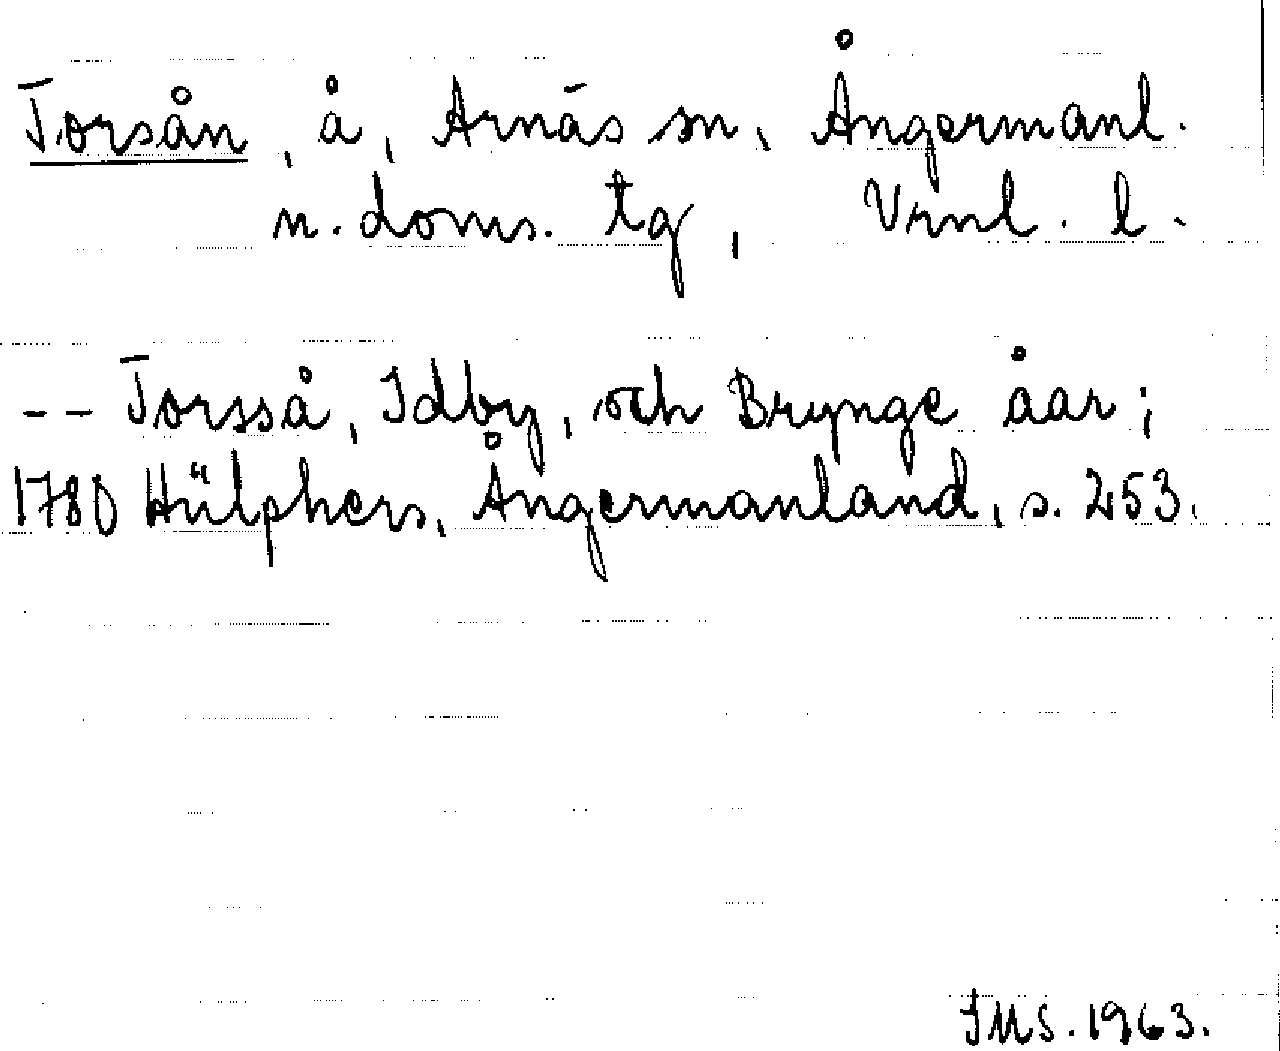 Torsån, å, Arnäs sn, Ångermanl.
n. doms. tg, Vrnl. l.
-- Torsså, Idby, och Brynge åar;
1780 Hülphers, Ångermanland, s. 253.
IMS. 1963.